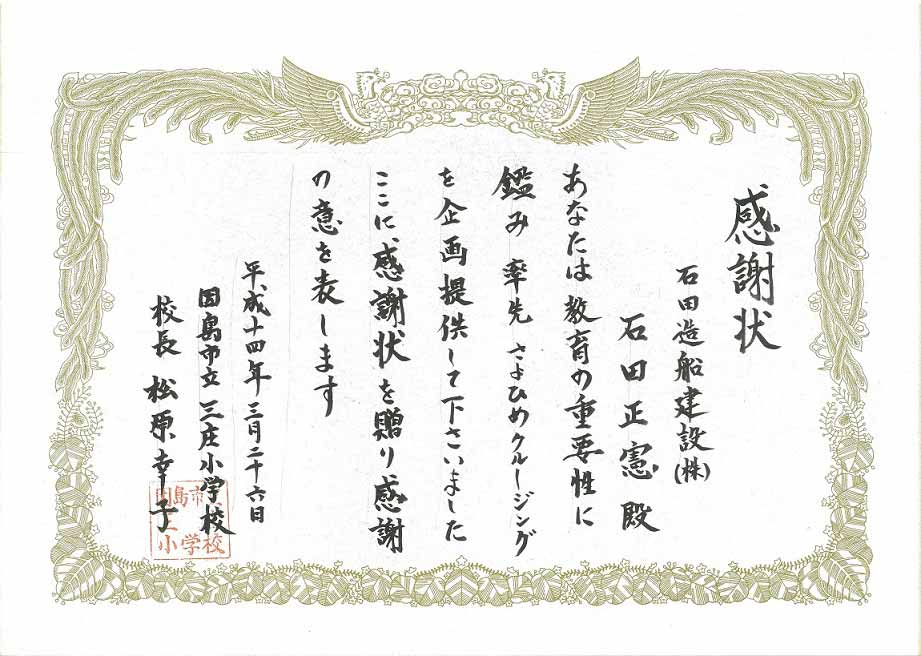 感謝状
石田造船建設(株)
石田正憲殿
あなたは教育の重要性に
鑑み 率先 さよひめクルージング
を企画提供して下さいました
ここに感謝状を贈り感謝
の意を表します
平成十四年三月二十六日
因島市立三庄小学校
校長 松原幸子
因島市
小学校